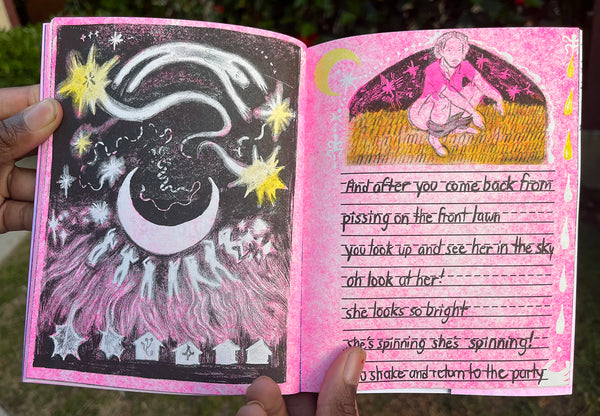 And after you come back from
pissing on the front lawn
you look up and see her in the sky
oh look at her!
she looks so bright
she's spinning she's spinning!
shake and return to the party